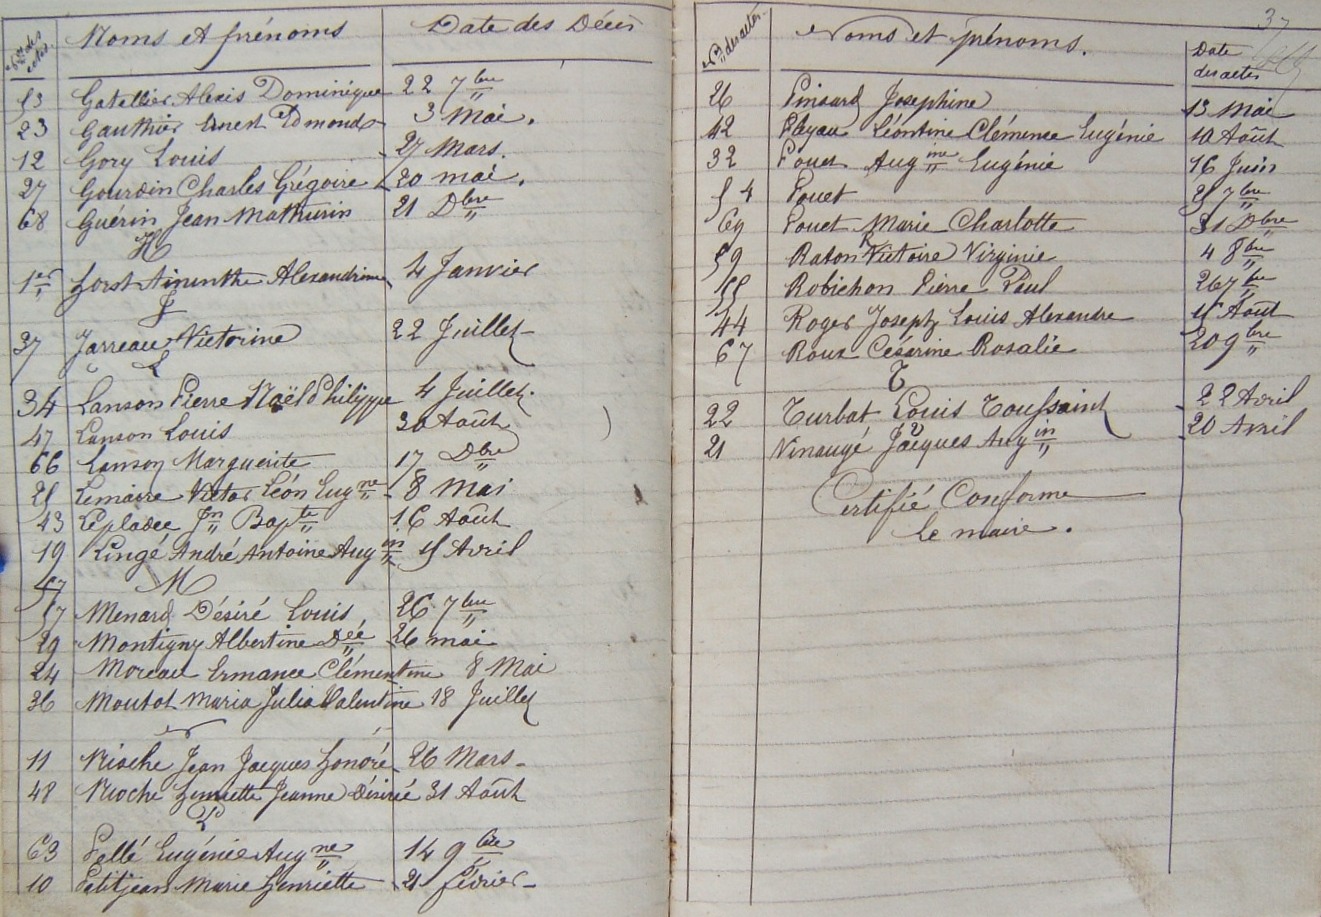 Nos des actes Noms et prénoms Date des Décès
53 Gatellier Alexis Dominique 22 7bre
23 Gauthier Ernest Edmond 3 Mai.
12 Gory Louis 27 Mars.
27 Gourdin Charles Grégoire 20 mai.
68 Guerin Jean Mathurin 21 Dbre
H
1er Horst Alexandrine 4 Janvier
J
37 Jarreau Victorine 22 Juillet
L
34 Lanson Pierre Noël Philippe 4 Juillet.
47 Lanson Louis 30 Août
66 Lanson Marguerite 17 Dbre
25 Lemaire Victor Léon Eugne 8 Mai
43 Lepladec Jn Bapte 16 Août
19 Lingé André Antoine Augin 15 Avril
M
57 Menard Désiré Louis 26 7bre
29 Montigny Albertine Dée 26 mai
24 Moreau Ermance Clémentine 8 Mai
36 Moutot Maria Julia Valentine 18 Juillet
N
11 Nioche Jean Jacques Honoré 26 Mars
48 Nioche Henriette Jeanne Désirée 31 Août
P
63 Pellé Eugénie Augne 14 9bre
10 Petitjean Marie Henriette 21 février
37
Nos des actes Noms et prénoms. Date des actes
26 Pinsard Josephine 13 Mai
42 Playau Léontine Clémence Eugénie 10 Août
32 Pouet Augine Eugénie 16 Juin
54 Pouet 25 7bre
69 Pouet Marie Charlotte 31 Dbre
R
59 Raton Victoire Virginie 4 8bre
55 Robichon Pierre Paul 26 7bre
44 Roger Joseph Louis Alexandre 15 Août
67 Roux Césarine Rosalie 20 9bre
T
22 Turbat Louis Toussaint 22 Avril
V
21 Vinaugé Jacques Augin 20 Avril
Certifié Conforme
Le maire.